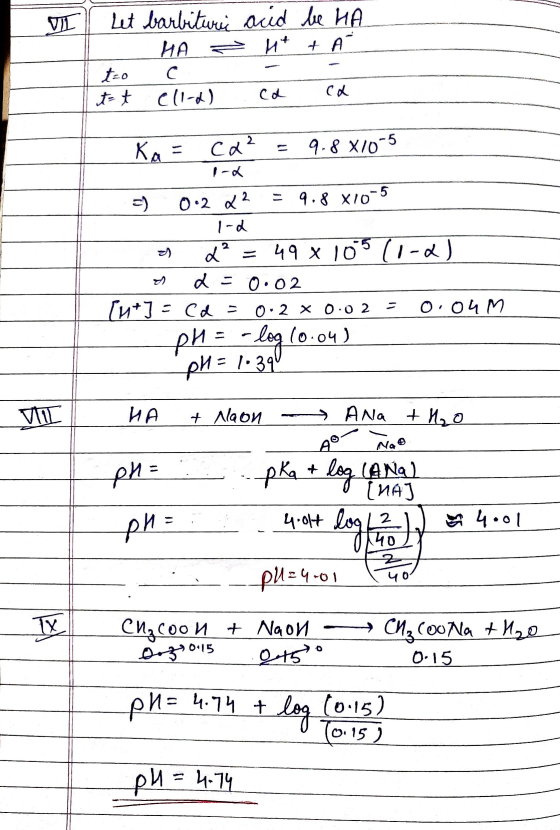 VII Let barbituric acid be HA
HA ⇌ H⁺ + A⁻
t=0 C – –
t=t C(1-α) Cα Cα
Ka = Cα²/(1-α) = 9.8 × 10⁻⁵
⇒ 0.2 α²/(1-α) = 9.8 × 10⁻⁵
⇒ α² = 49 × 10⁻⁵ (1-α)
⇒ α = 0.02
[H⁺] = Cα = 0.2 × 0.02 = 0.04 M
pH = -log (0.04)
pH = 1.39
VIII HA + NaOH → ANa + H₂O
A⊖ Na⊕
pH = pKa + log (ANa)/[HA]
pH = 4.01+ log ((2/40)/(2/40)) ≈ 4.01
pH = 4.01
IX CH₃COOH + NaOH → CH₃COONa + H₂O
0.3→0.15 0.15→0 0.15
pH = 4.74 + log (0.15)/(0.15)
pH = 4.74